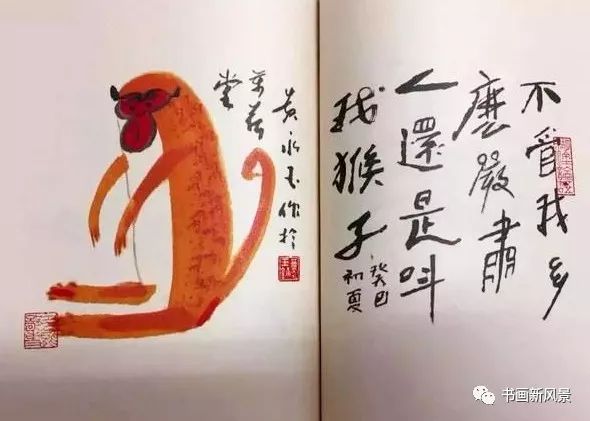 不管我多
麼嚴肅
人還是叫
我猴子
癸巳
初夏
黄永玉作於
萬荷
堂
书画新风景